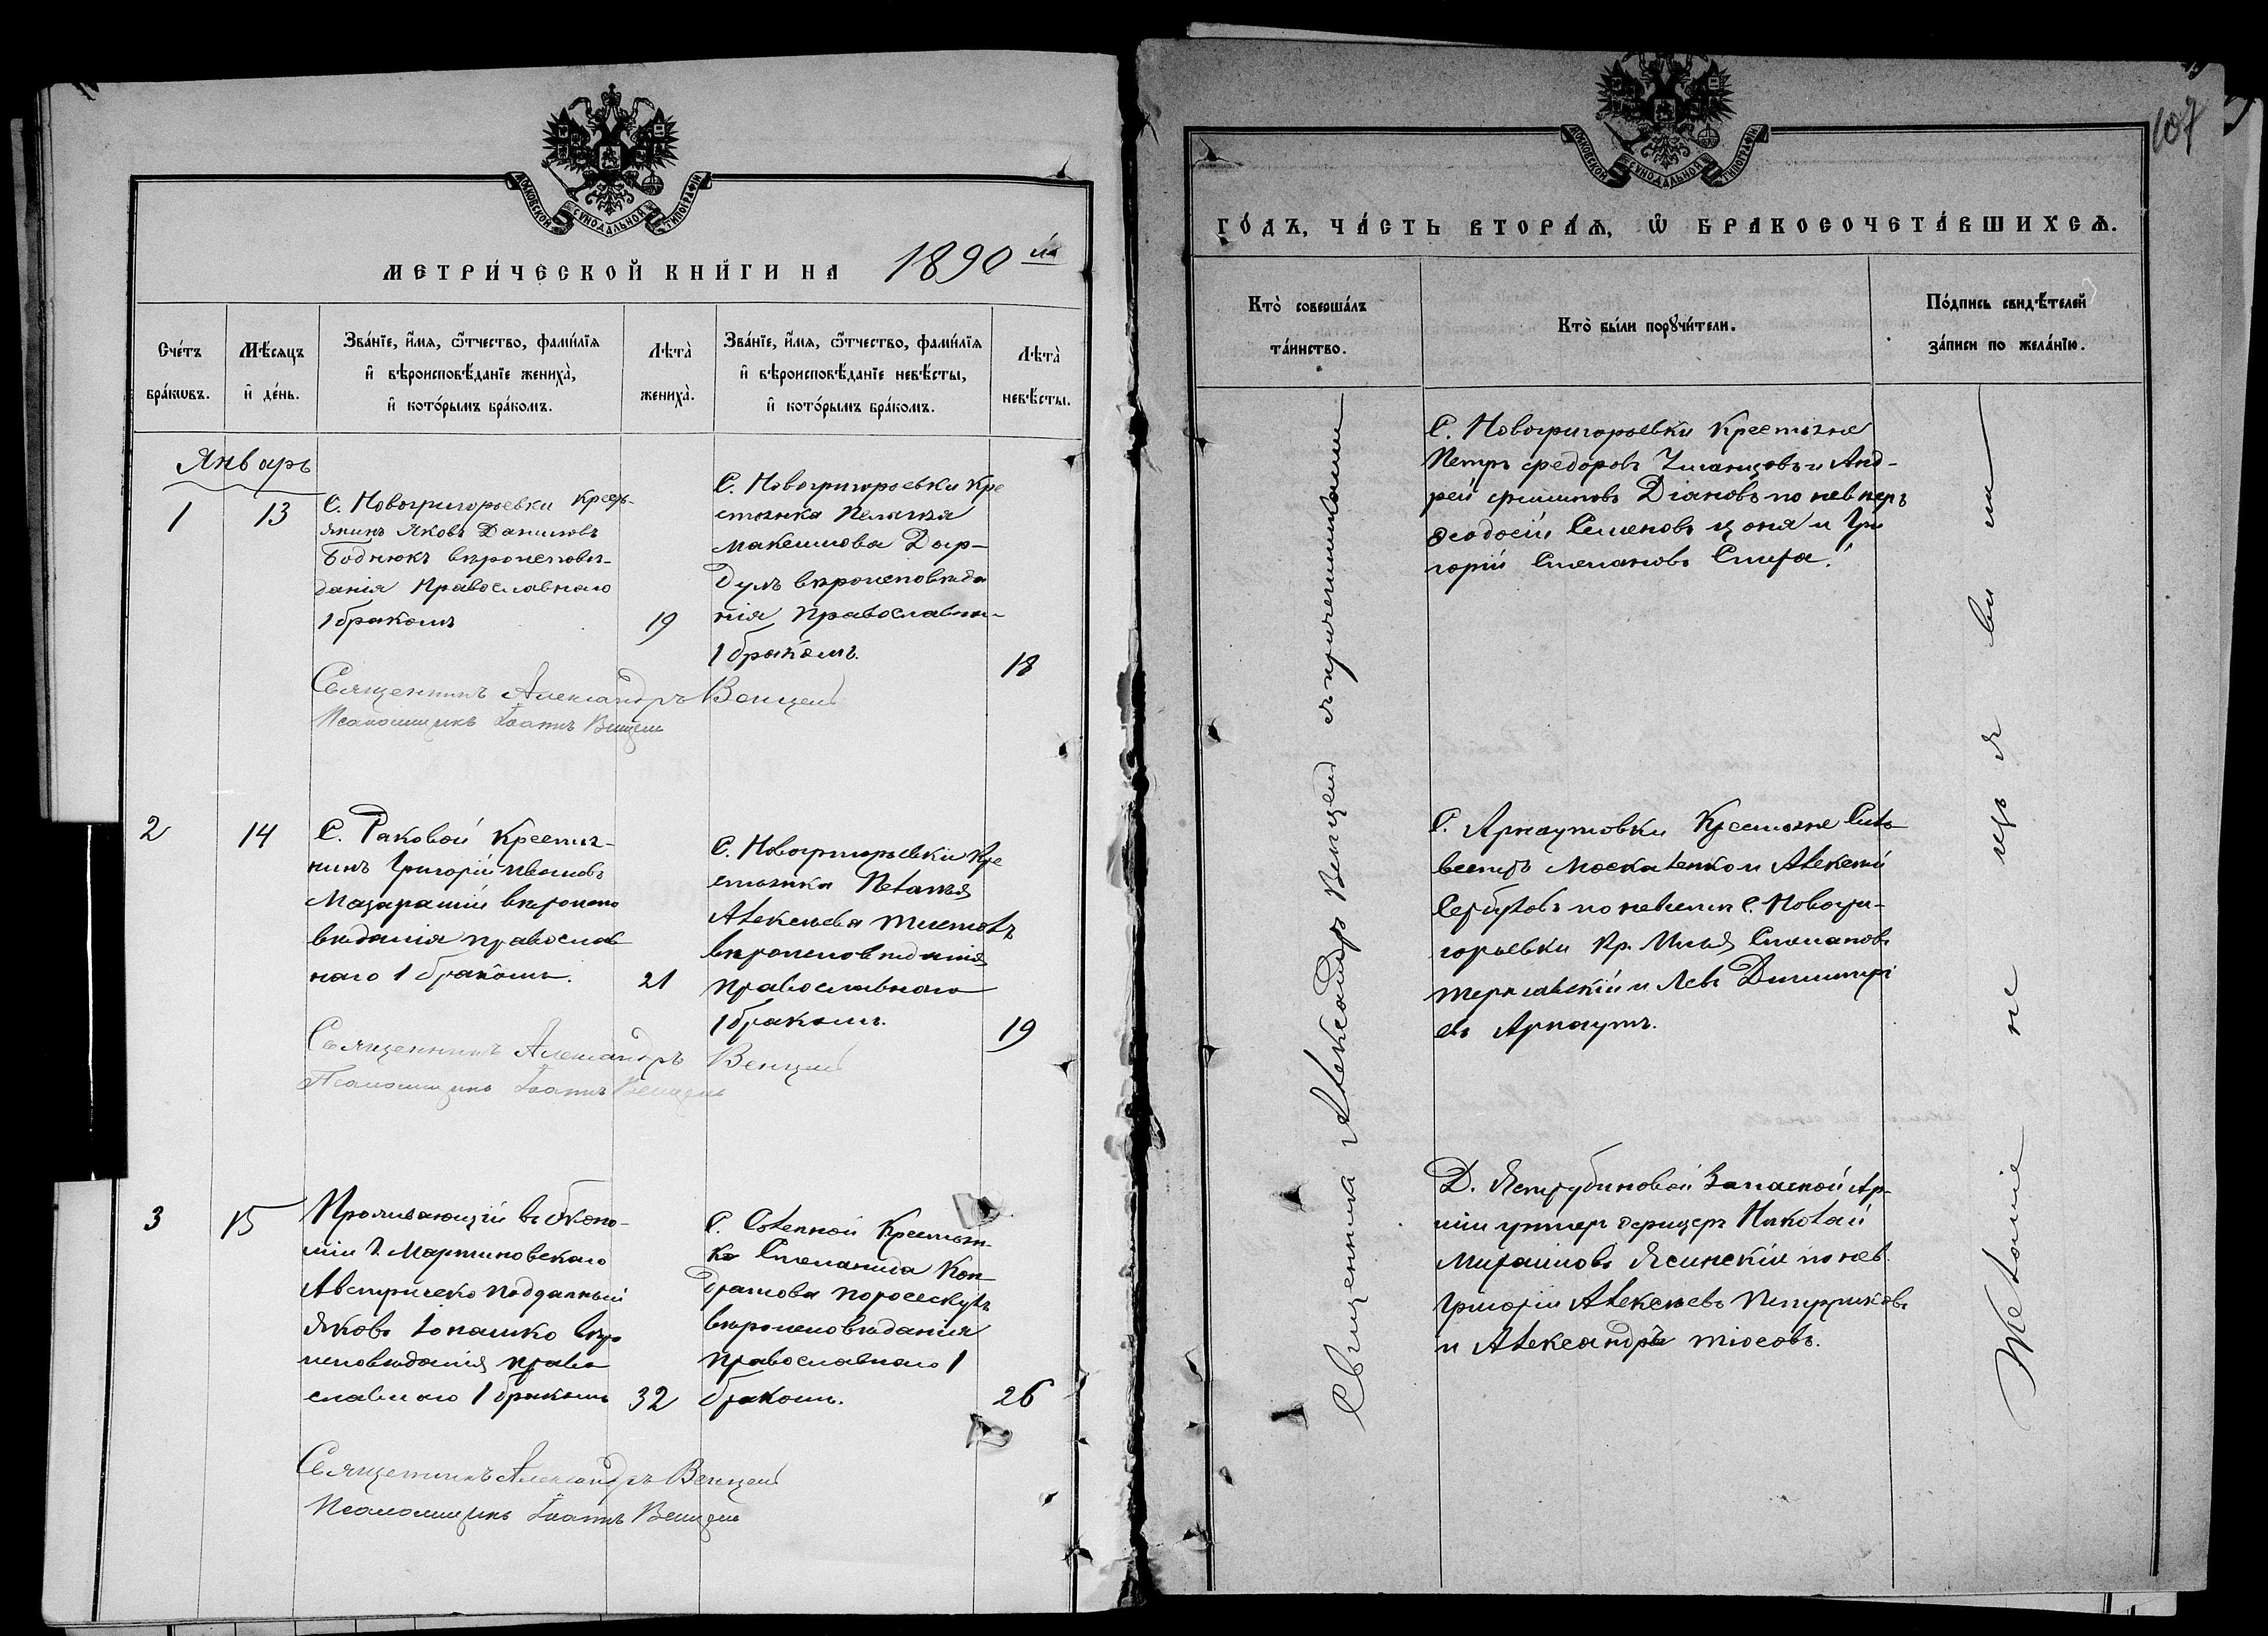 МОСКОВСКОЙ СѴНОДАЛЬНОЙ ТИПОГРАФІИ
МЕТРИ́ЧЕСКОЙ КНИ́ГИ НА 1890 й
Сче́тъ бра́кѡвъ.
Мѣ́сяцъ и҆ де́нь.
Зва́нїе, и҆́мя, ѻ҆́тчество, фами́лїя
и҆ вѣроисповѣ́данїе жениха̀,
и҆ кото́рымъ бра́комъ.
Лѣта̀ жениха̀.
Зва́нїе, и҆́мя, ѻ҆́тчество, фами́лїя
и҆ вѣроисповѣ́данїе невѣ́сты,
и҆ кото́рымъ бра́комъ.
Лѣта̀ невѣ́сты.
Январь
1
13
С. Новогригорьевки Кресть-
янинъ Яковъ Даниловъ
Боднюкъ вѣроисповѣ-
данія Православнаго
1 бракомъ
19
С. Новогригорьевки Кре
стьянка Пелагія
Максимова Дар-
дулъ вѣроисповѣда
нія Православна-
1 бракомъ.
18
Священникъ Александръ Венцель
Псаломщикъ Іоаннъ Венцель
2
14
С. Раковой Крестья-
нинъ Григорій Ивановъ
Мазаратій вѣроиспо
вѣданія православ
наго 1 бракомъ.
21
С. Новогригорьевки Кре
стьянка Пелагія
Алексѣева
вѣроисповѣданія
православнаго
1 бракомъ.
19
Священникъ Александръ Венцель
Псаломщикъ Іоаннъ Венцель
3
15
Проживающій въ Эконо-
міи Г. Мартиновскаго
Австрическо подданный
Яковъ Іопашко вѣро
исповѣданія право
славнаго 1 бракомъ
32
С. Степной Крестьян-
ка Степанида Кон-
дратова
вѣроисповѣданія
православнаго 1
бракомъ.
26
Священникъ Александръ Венцель
Псаломщикъ Іоаннъ Венцель
107
МОСКОВСКОЙ СѴНОДАЛЬНОЙ ТИПОГРАФІИ
ГО́ДЪ, ЧА́СТЬ ВТОРА́Ѧ, Ѽ БРАКОСОЧЕТА́ВШИХСѦ.
Кто̀ соверша́лъ
та́инство.
Кто̀ бы́ли порꙋчи́тели.
По́дпись свидѣ́телей
за́писи по жела́нїю.
Священникъ Александръ Венцель съ причетникомъ
С. Новогригорьевки Крестьяне
Петръ Федоровъ и Анд-
рей Филиповъ Діановъ по нев
Феодосій Семеновъ Цоня и Гри
горій Степановъ Спира.
С. Арнаутовки Крестьяне Силь
вестръ Москаленко и Алексѣй
Сербуловъ по невѣстѣ С. Новогри-
горьевки Кр. Илья Степановъ
Терлавскій и Левъ Димитрі
евъ Арнаутъ.
Д. Яструбиновой Запасной Ар-
міи унтеръ офицеръ Николай
Михаиловъ Ясинскій по нев.
Григорій Алексѣевъ
и Александръ Тюсовъ.
Желаніе не